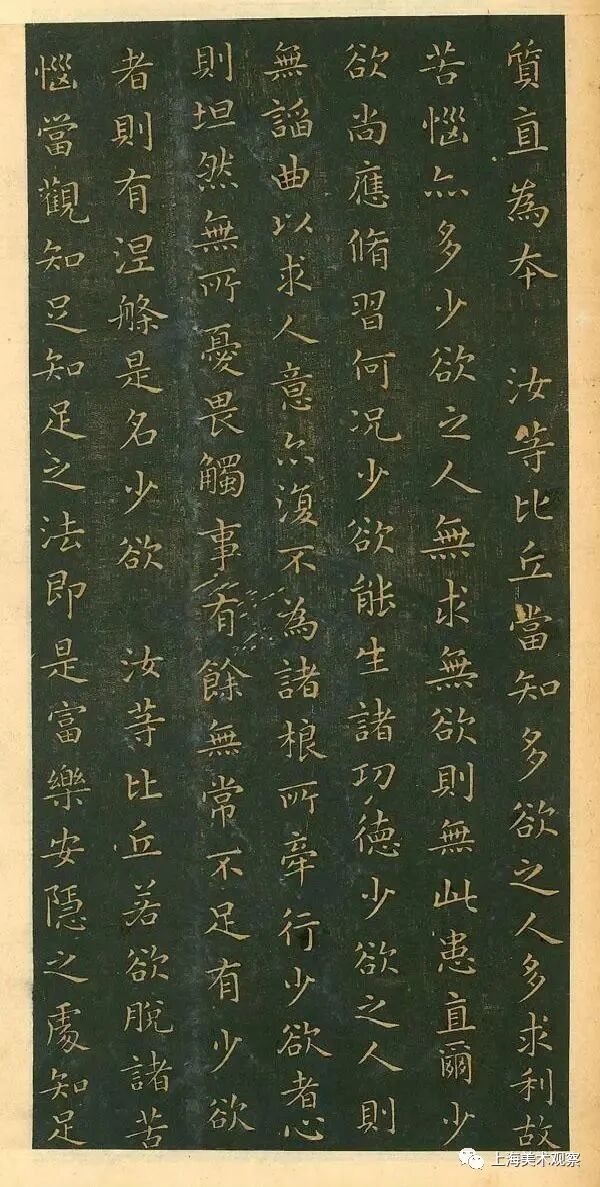 質直為本　汝等比丘當知多欲之人多求利故
苦惱亦多少欲之人無求無欲則無此患直爾少
欲尚應脩習何況少欲能生諸功德少欲之人則
無謟曲以求人意亦復不為諸根所牽行少欲者心
則坦然無所憂畏觸事有餘無常不足有少欲
者則有涅槃是名少欲　汝等比丘若欲脫諸苦
惱當觀知足知足之法即是富樂安隱之處知足
上海美术观察